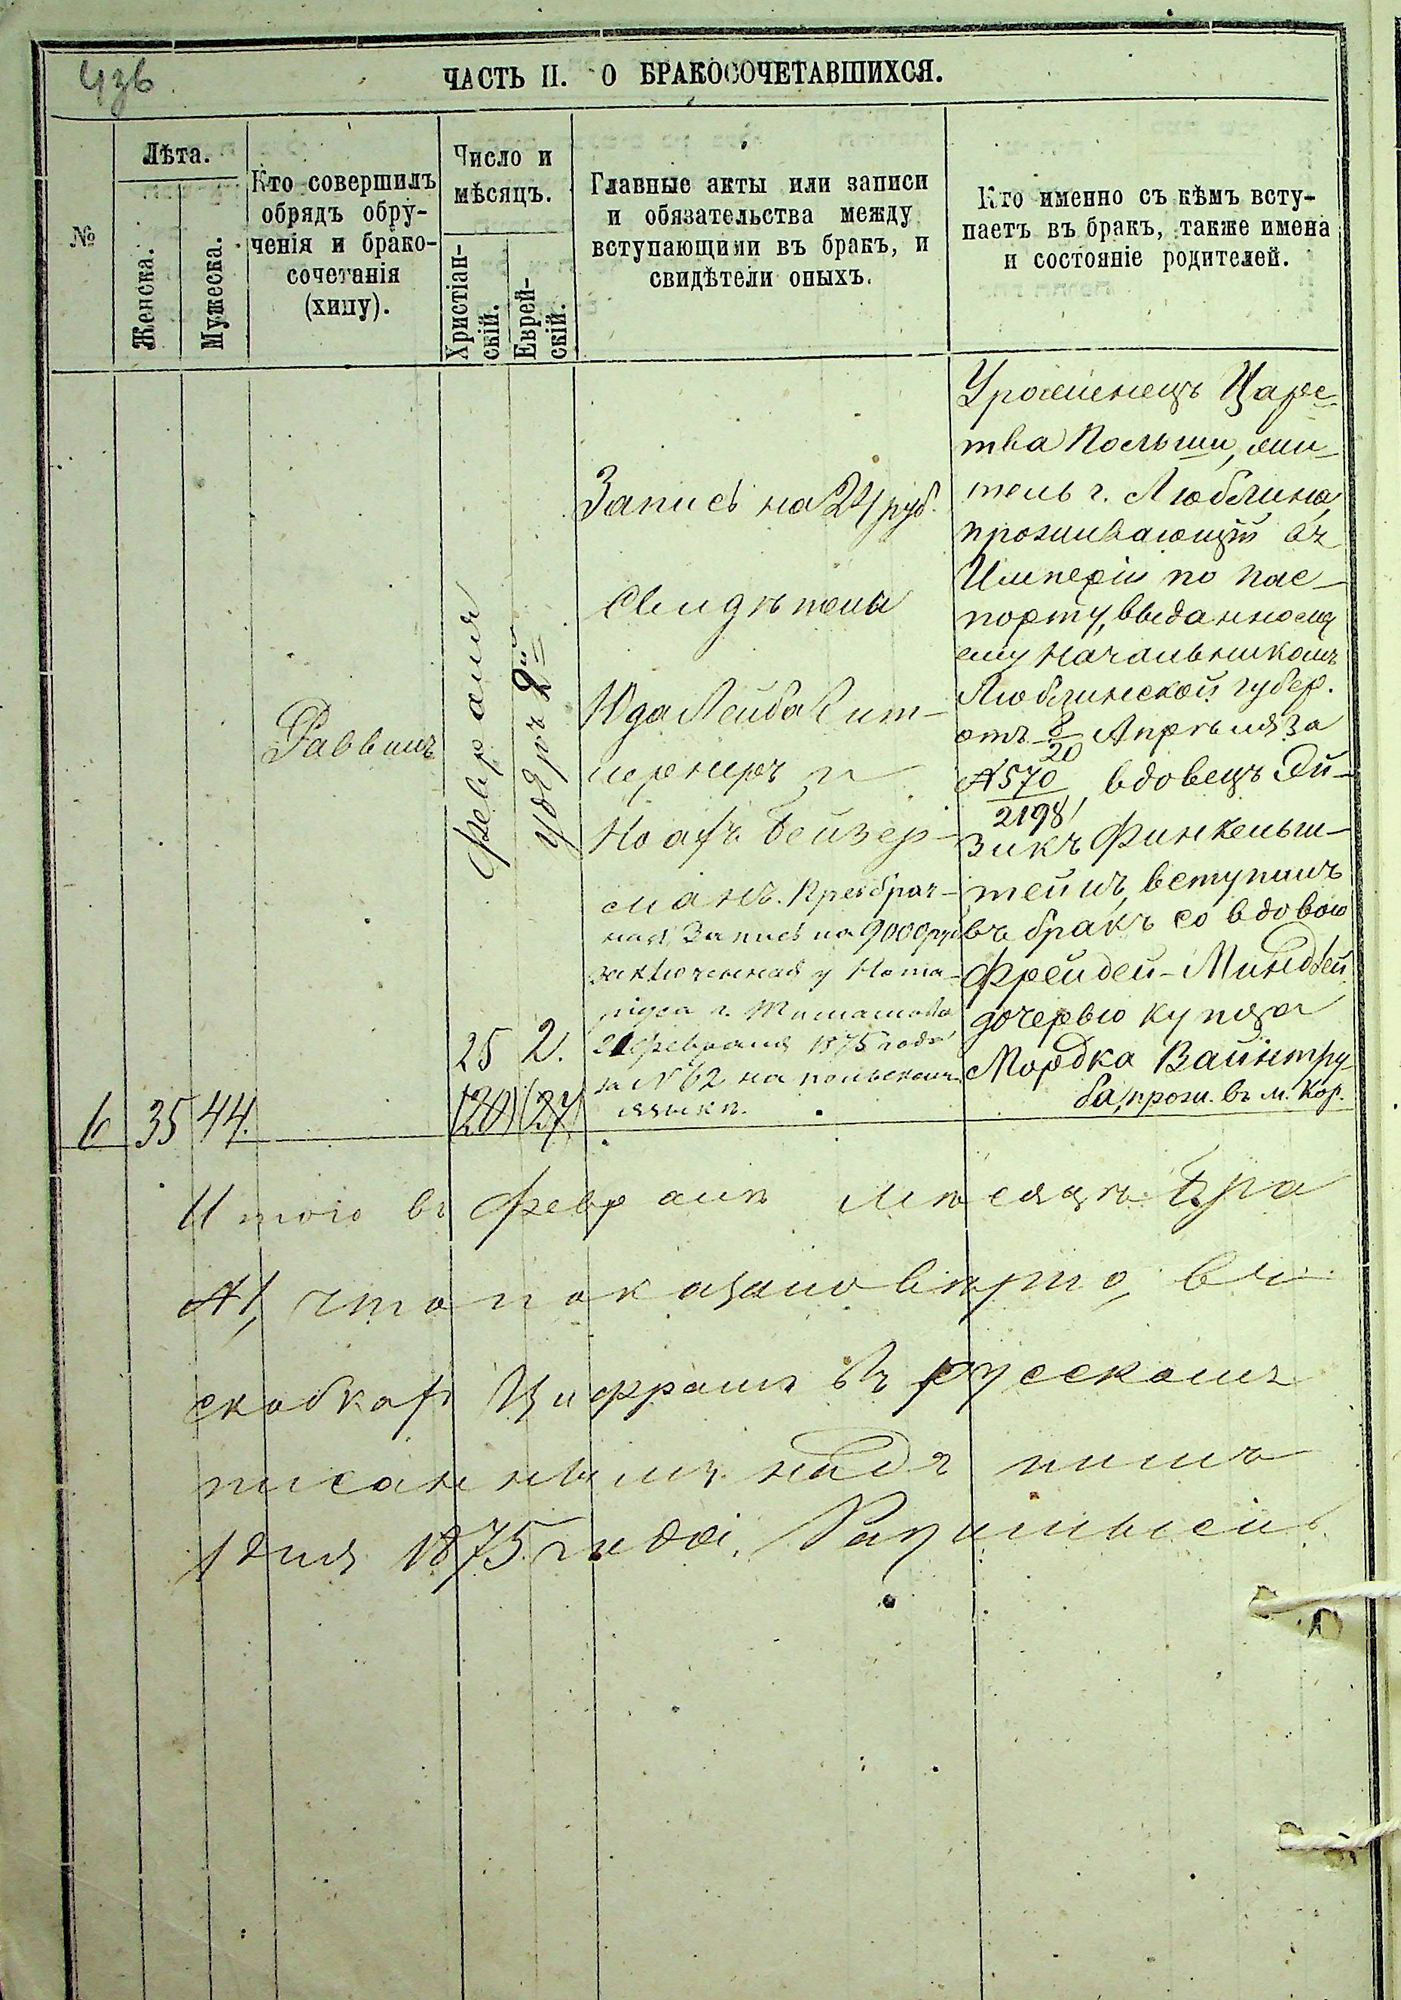 436
ЧАСТЬ II. О БРАКОСОЧЕТАВШИХСЯ.
№
Лѣта.
Женска.
Мужеска.
Кто совершилъ
обрядъ обру-
ченія и брако-
сочетанія
(хипу).
Число и
мѣсяцъ.
Христіан-
скій.
Еврей-
скій.
Главные акты или записи
и обязательства между
вступающими въ бракъ, и
свидѣтели оныхъ.
Кто именно съ кѣмъ всту-
паетъ въ бракъ, также имена
и состояніе родителей.
6
35
44.
Раввинъ
Февраля
25
(20)
Удѣръ 2й
2.
(27)
Запись на 24 руб.
Свидѣтели
Юда Лейба
и
Ноахъ Бейзер-
манъ. Предбрач-
ная запись на 9000 руб
заключенная у Нота-
ріуса г.
21 Февраля 1875 года
за № 62 на польскомъ
языкѣ.
Уроженецъ Царс-
тва Польши, жи-
тель г. Люблина,
проживающій въ
Имперіи по пас-
порту, выданному
ему Начальникомъ
Люблинской губер.
отъ 8/20 Апрѣля за
№ 570/2198, вдовецъ Эй-
зикъ Финкельш-
тейнъ, вступилъ
въ бракъ со вдовою
Фрейдей-Миндлей
дочерью купца
Мордка Вайнтру-
ба, прож. въ м. Кор.
Итого въ Февралѣ мѣсяцѣ бра
что показано вѣрно, въ
скобкахъ Цифрамъ въ русскомъ
писаннымъ надъ нимъ
1 дня 1875 года.